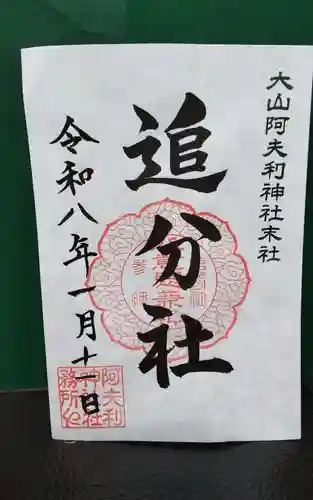 大山阿夫利神社末社
追分社
令和八年一月十一日
阿夫利
神社社
務所之